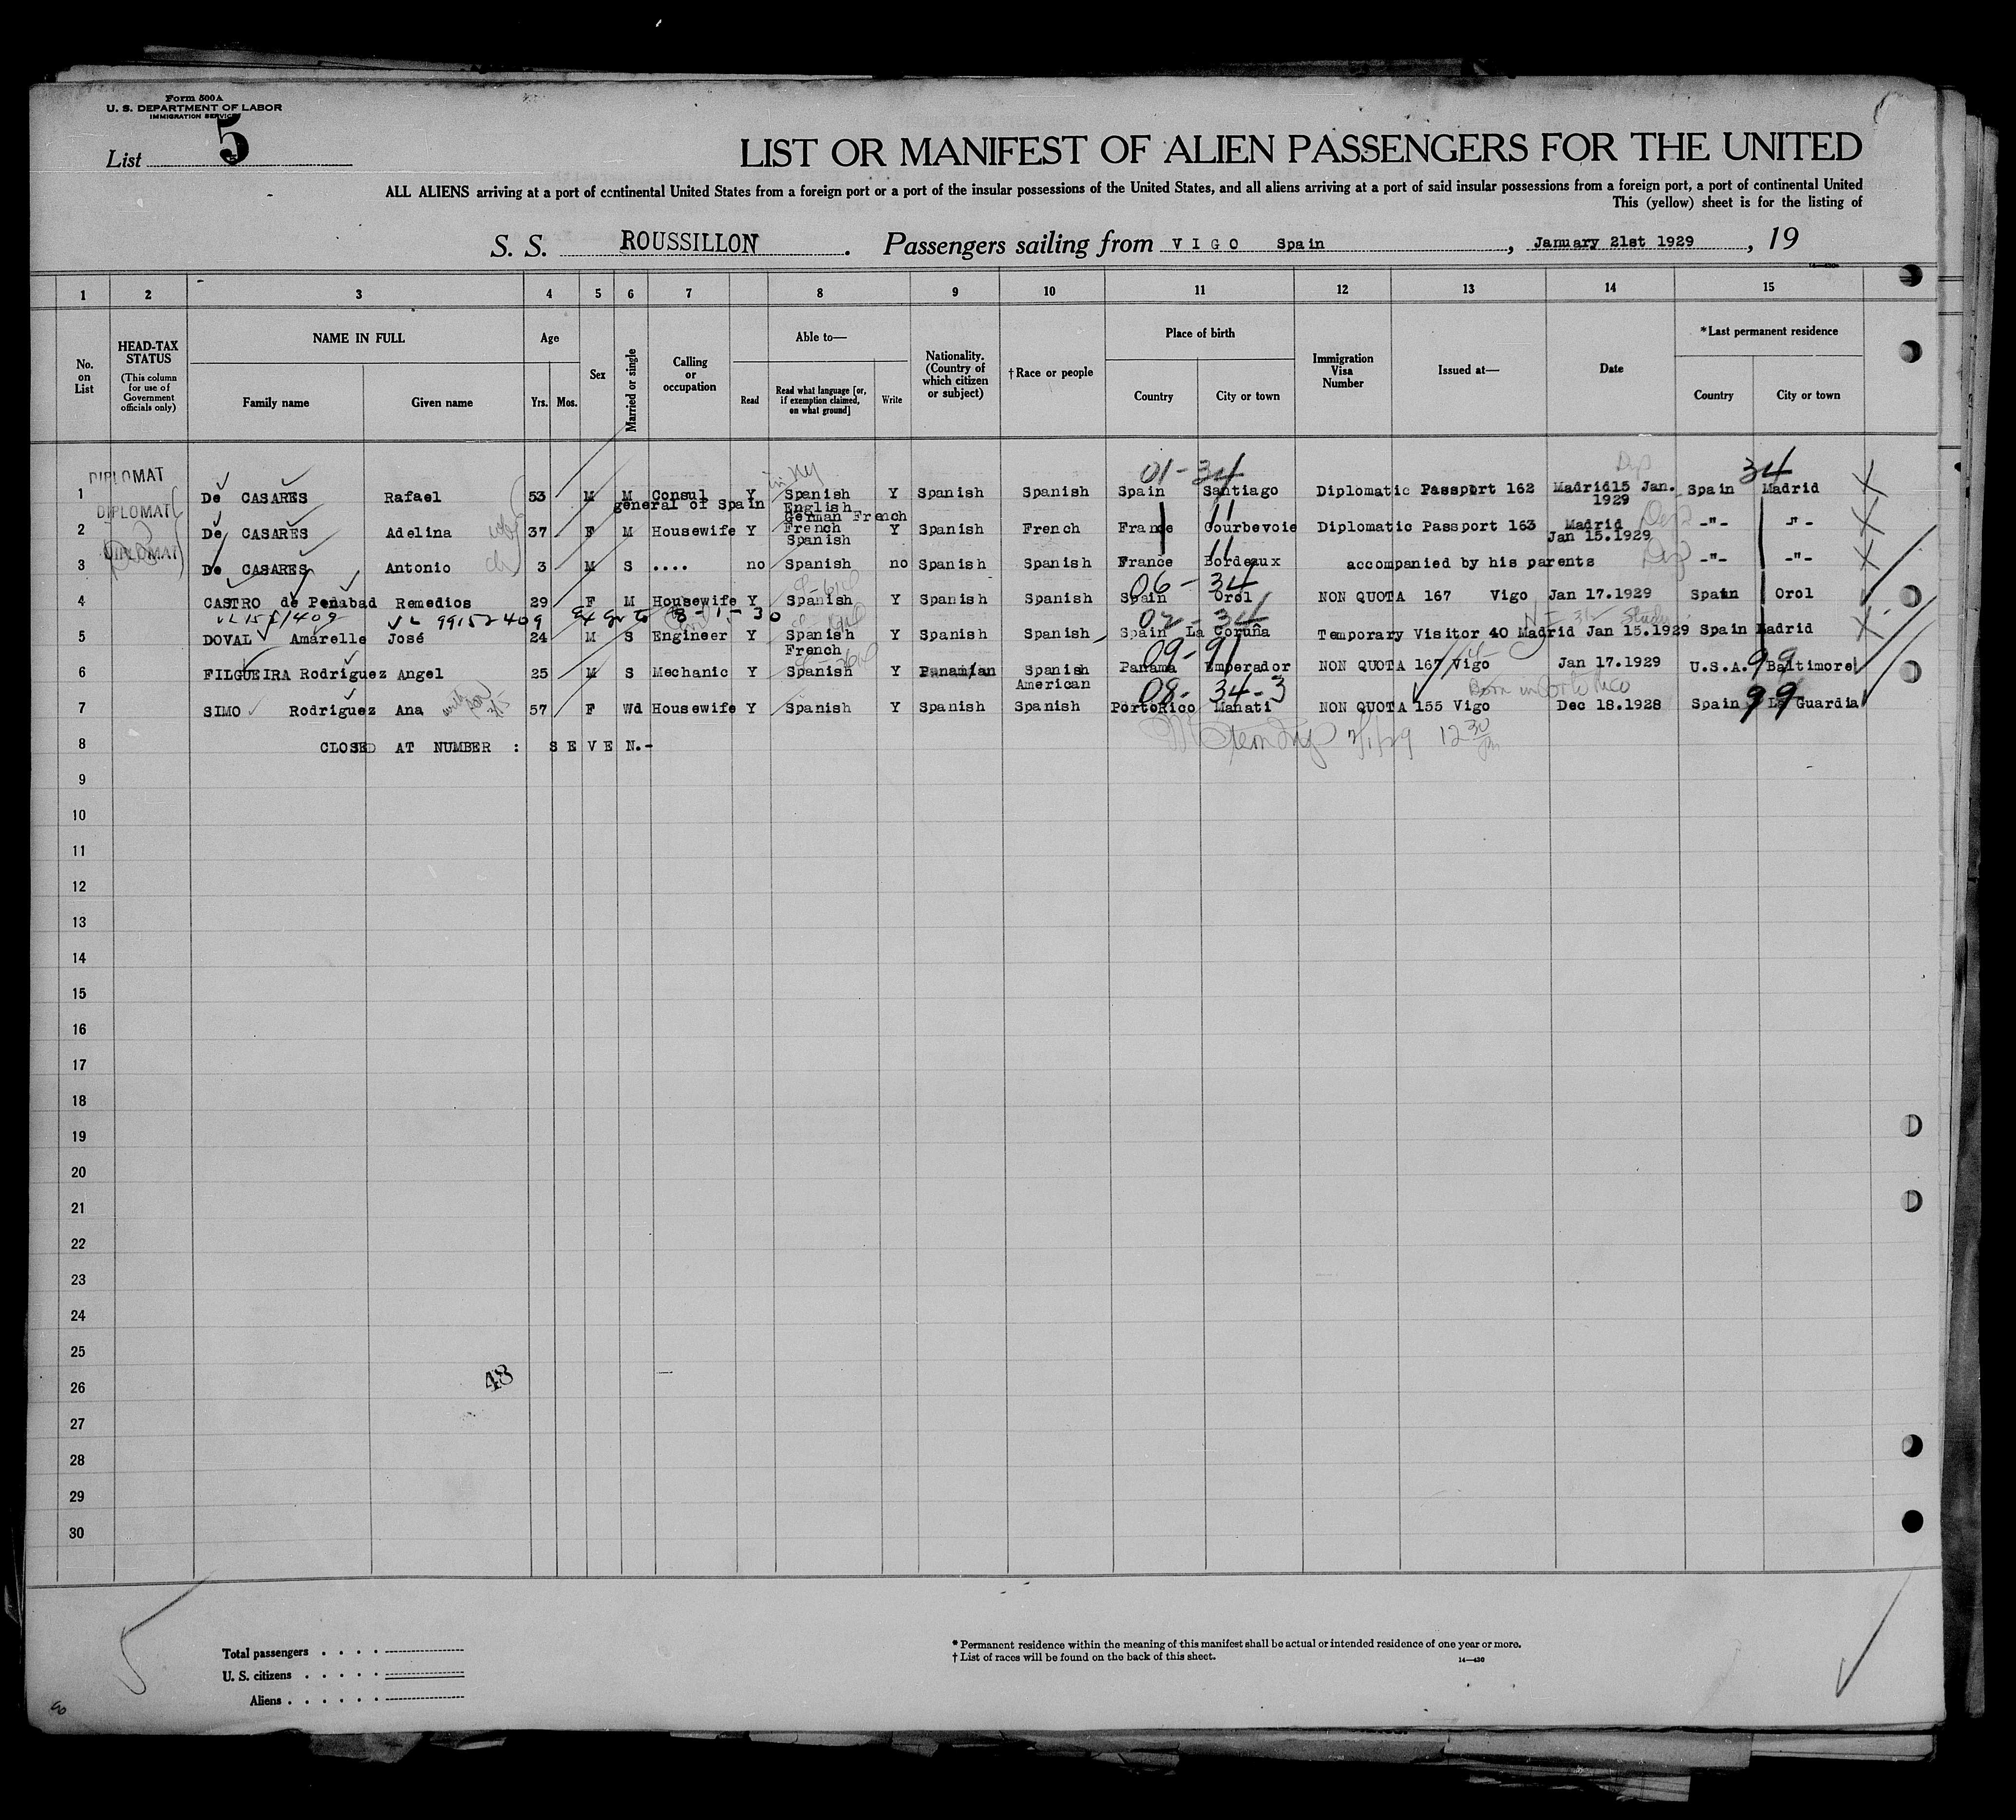 Form 500A
U. S. DEPARTMENT OF LABOR
IMMIGRATION SERVICE
List 5
LIST OR MANIFEST OF ALIEN PASSENGERS FOR THE UNITED
ALL ALIENS arriving at a port of continental United States from a foreign port or a port of the insular possessions of the United States, and all aliens arriving at a port of said insular possessions from a foreign port, a port of continental United
This (yellow) sheet is for the listing of
S. S. ROUSSILLON. Passengers sailing from VIGO Spain, January 21st 1929, 19
1 2 3 4 5 6 7 8 9 10 11 12 13 14 15
No. on List
HEAD-TAX STATUS (This column for use of Government officials only)
NAME IN FULL
Family name Given name
Age
Yrs. Mos.
Sex
Married or single
Calling or occupation
Able to—
Read Read what language [or, if exemption claimed, on what ground] Write
Nationality. (Country of which citizen or subject)
†Race or people
Place of birth
Country City or town
Immigration Visa Number
Issued at—
Date
*Last permanent residence
Country City or town
DIPLOMAT 01-34 34
1 De CASARES Rafael 53 M M Consul Y Spanish Y Spanish Spanish Spain Santiago Diplomatic Passport 162 Madrid15 Jan. Spain Madrid
general of Spain English 1929
DIPLOMAT German French 11
2 De CASARES Adelina 37 F M Housewife Y French Y Spanish French France Courbevoie Diplomatic Passport 163 Madrid -"- -"-
Spanish Jan 15.1929
DIPLOMAT 11
3 De CASARES Antonio 3 M S .... no Spanish no Spanish Spanish France Bordeaux accompanied by his parents -"- -"-
06-34
4 CASTRO de Penabad Remedios 29 F M Housewife Y Spanish Y Spanish Spanish Spain Orol NON QUOTA 167 Vigo Jan 17.1929 Spain Orol
99152409 8-1-30 02-34 Study
5 DOVAL Amarelle José 24 M S Engineer Y Spanish Y Spanish Spanish Spain La Coruña Temporary Visitor 40 Madrid Jan 15.1929 Spain Madrid
French 09-91 99
6 FILGUEIRA Rodríguez Angel 25 M S Mechanic Y Spanish Y Panamian Spanish Panama Emperador NON QUOTA 167 Vigo Jan 17.1929 U.S.A. Baltimore
American 08-34-3 Born in Porto Rico 99
7 SIMO Rodríguez Ana 57 F Wd Housewife Y Spanish Y Spanish Spanish PortoRico Manati NON QUOTA 155 Vigo Dec 18.1928 Spain La Guardia
2/1/29 12 30 pm
8 CLOSED AT NUMBER : SEVEN.-
9
10
11
12
13
14
15
16
17
18
19
20
21
22
23
24
25
26
48
27
28
29
30
Total passengers
U. S. citizens
Aliens
* Permanent residence within the meaning of this manifest shall be actual or intended residence of one year or more.
† List of races will be found on the back of this sheet.
14—430